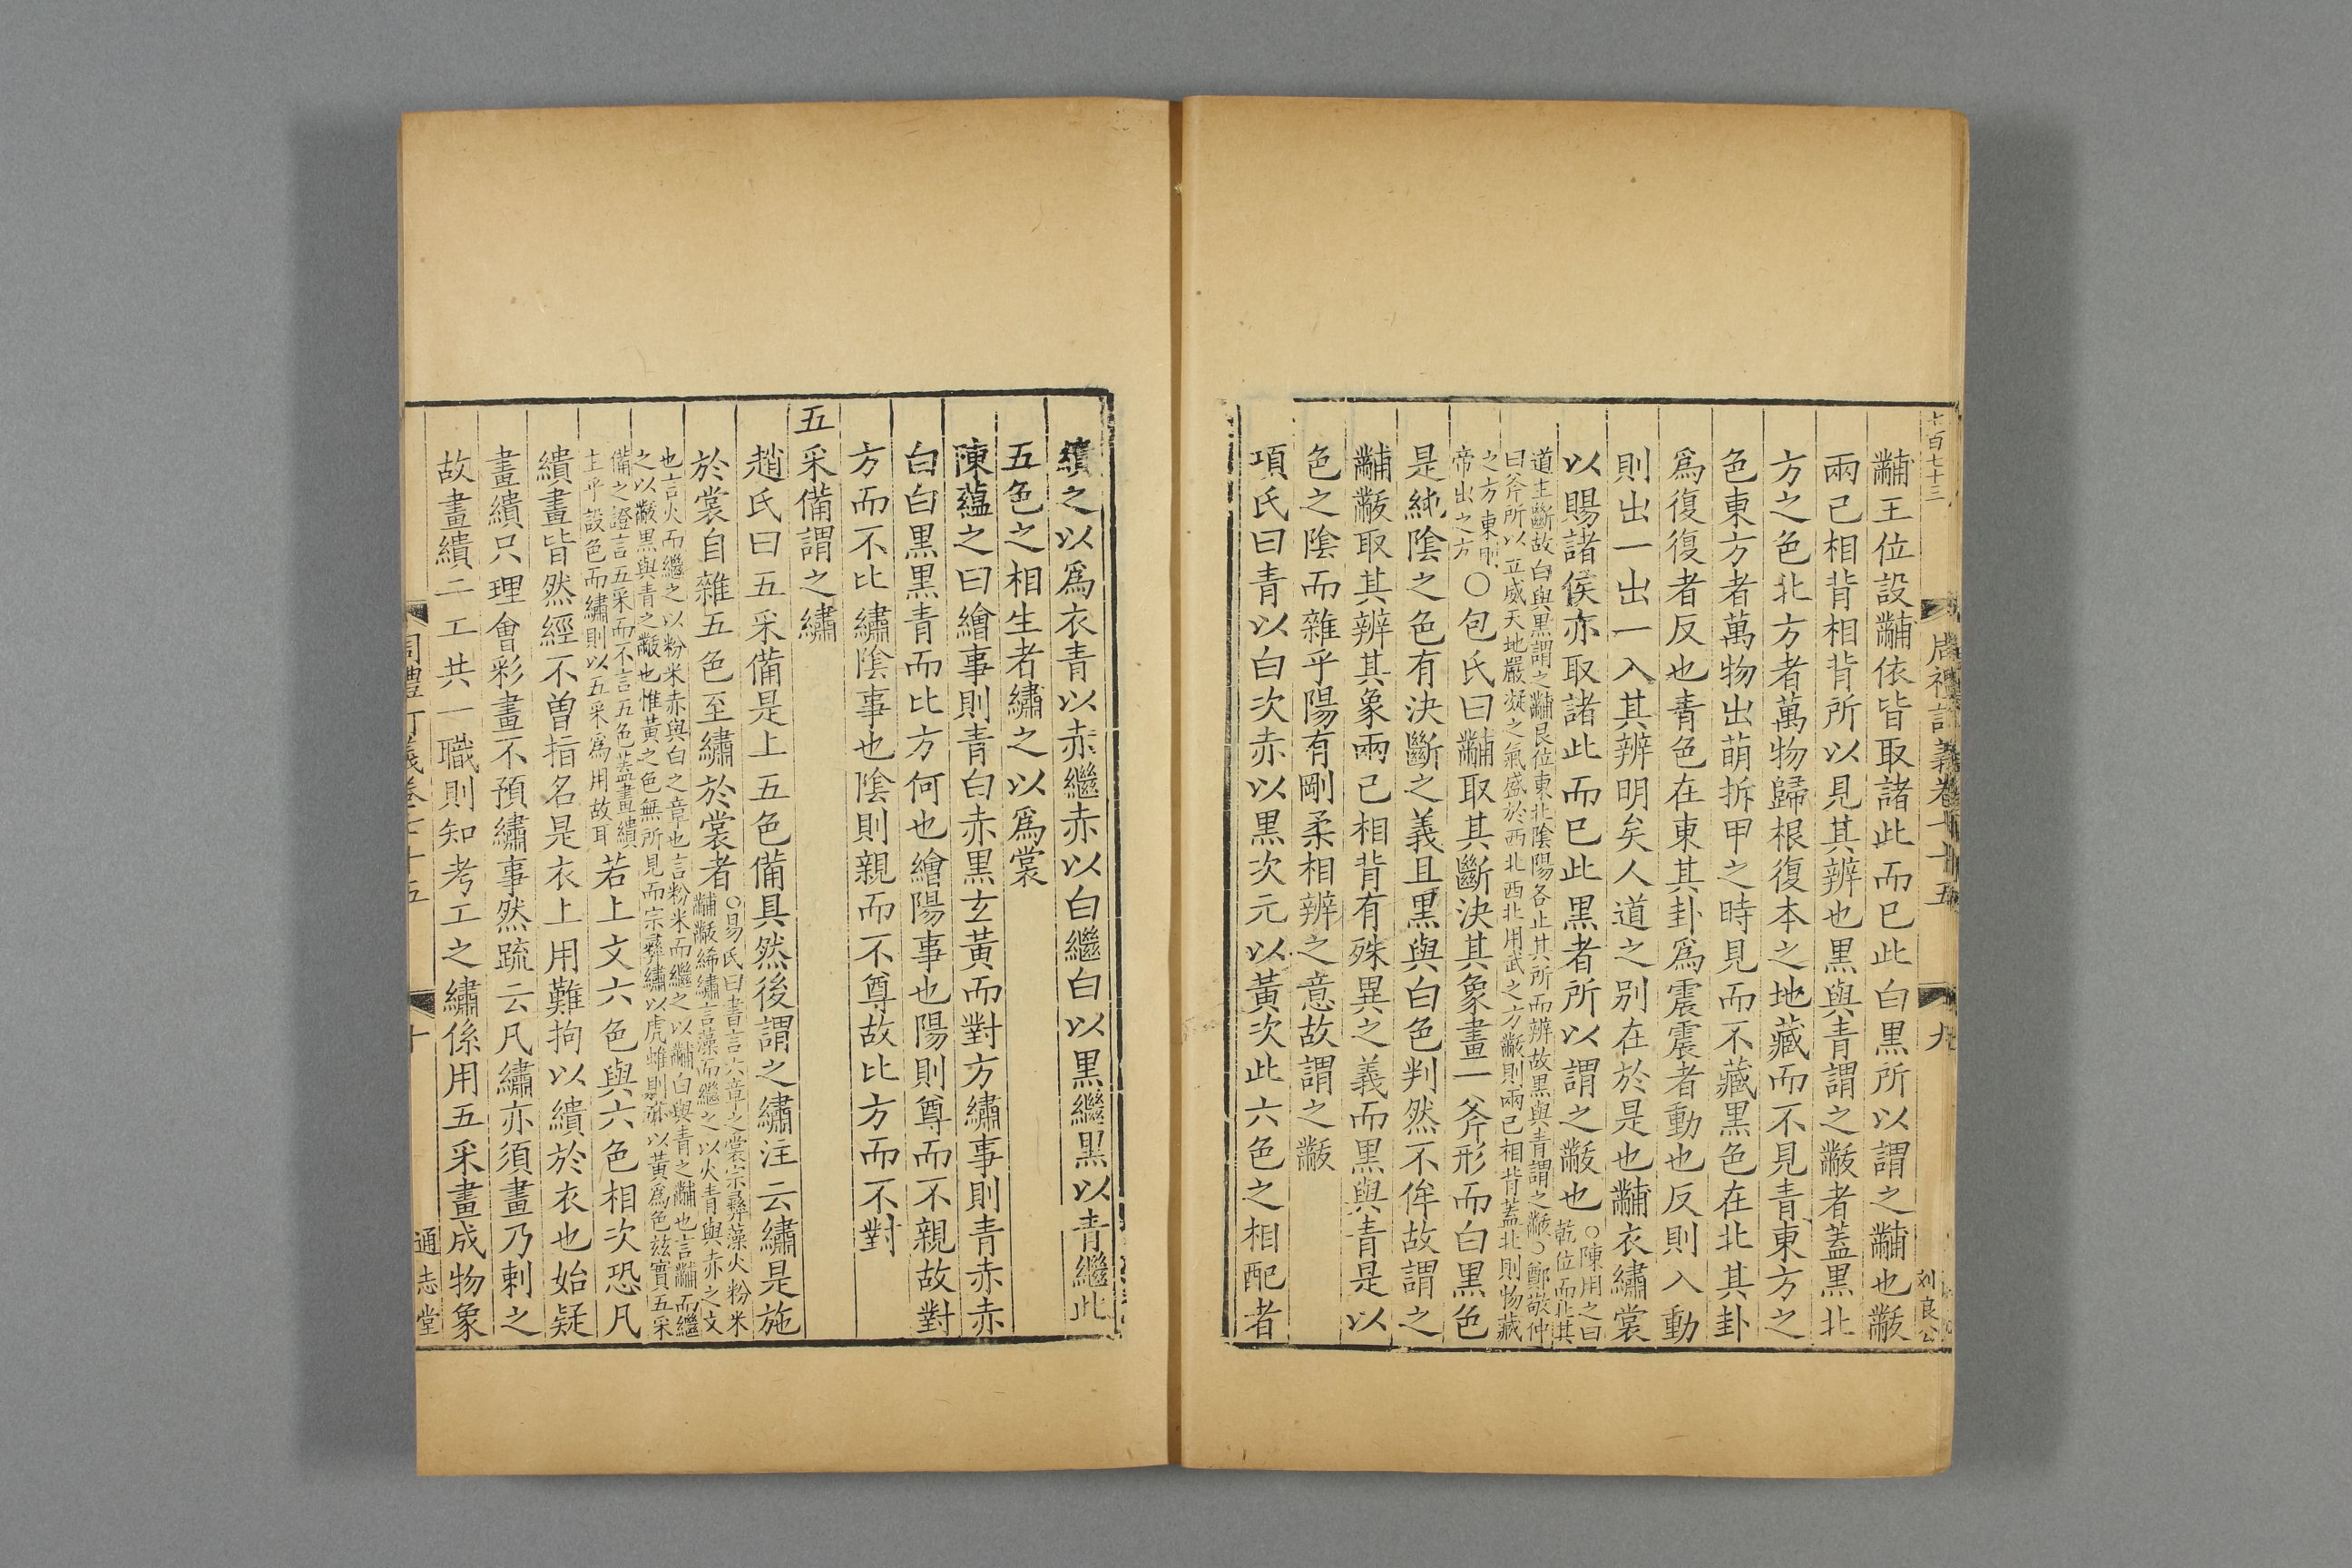 七百七十三
周禮訂義卷七十五
九
刘良公
黼王位設黼依皆取諸此而已此白黑所以謂之黼也黻
兩己相背相背所以見其辨也黑與青謂之黻者蓋黑北
方之色北方者萬物歸根復本之地藏而不見青東方之
色東方者萬物出萌拆甲之時見而不藏黑色在北其卦
爲復復者反也青色在東其卦爲震震者動也反則入動
則出一出一入其辨明矣人道之別在於是也黼衣繡裳
以賜諸侯亦取諸此而已此黑者所以謂之黻也
○陳用之曰
乾位而北其
道主斷故白與黑謂之黼艮位東北陰陽各止其所而辨故黑與青謂之黻○鄭敬仲
曰斧所以立威天地嚴凝之氣盛於西北西北用武之方黻則兩己相背蓋北則物藏
之方東則
帝出之方
○包氏曰黼取其斷決其象畫一斧形而白黑色
是純陰之色有決斷之義且黑與白色判然不侔故謂之
黼黻取其辨其象兩己相背有殊異之義而黑與青是以
色之陰而雜乎陽有剛柔相辨之意故謂之黻
項氏曰青以白次赤以黑次元以黃次此六色之相配者
繢之以爲衣青以赤繼赤以白繼白以黑繼黑以青繼此
五色之相生者繡之以爲裳
陳蘊之曰繪事則青白赤黑玄黃而對方繡事則青赤赤
白白黑黑青而比方何也繪陽事也陽則尊而不親故對
方而不比繡陰事也陰則親而不尊故比方而不對
五采備謂之繡
趙氏曰五采備是上五色備具然後謂之繡注云繡是施
於裳自雜五色至繡於裳者
○易氏曰書言六章之裳宗彝藻火粉米
黼黻絺繡言藻而繼之以火青與赤之文
也言火而繼之以粉米赤與白之章也言粉米而繼之以黼白與青之黼也言黼而繼
之以黻黑與青之黻也惟黃之色無所見而宗彝繡以虎蜼則雜以黃爲色茲實五采
備之證言五采而不言五色蓋畫繢
主乎設色而繡則以五采爲用故耳
若上文六色與六色相次恐凡
繢畫皆然經不曾指名是衣上用難拘以繢於衣也始疑
畫繢只理會彩畫不預繡事然疏云凡繡亦須畫乃刺之
故畫繢二工共一職則知考工之繡係用五采畫成物象
周禮訂義卷七十五
十
通志堂